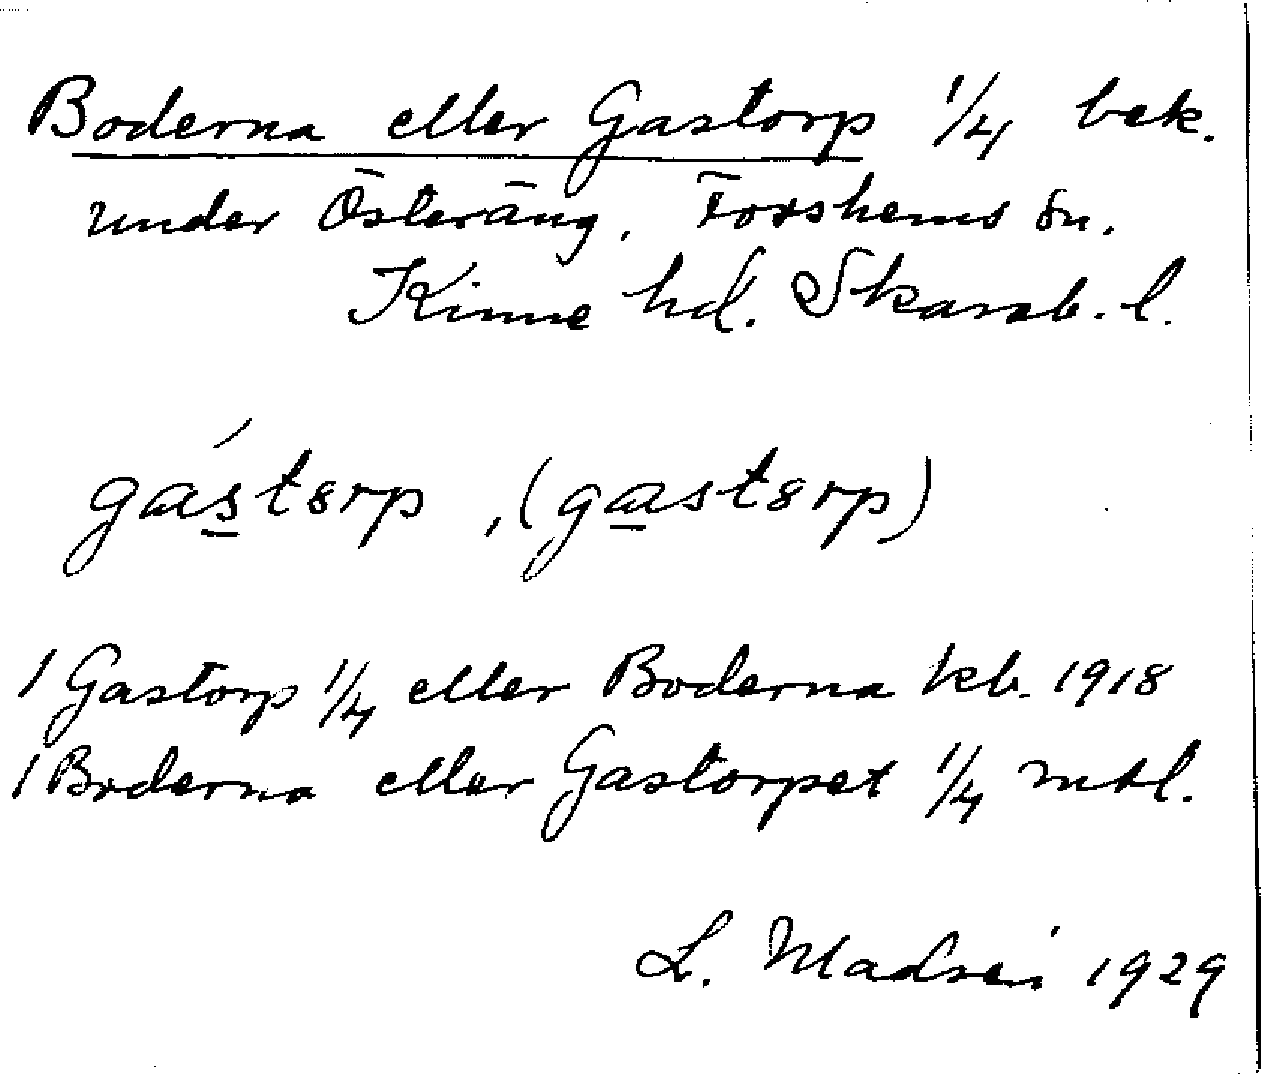 Boderna eller Gastorp 1/4 bek.
under Österäng. Forshems sn.
Kinne hd. Skarab. l.
gástorp, (gastorp)
1 Gastorp 1/4 eller Boderna kb. 1918
1 Boderna eller Gastorpet 1/4 mtl.
L. 1929